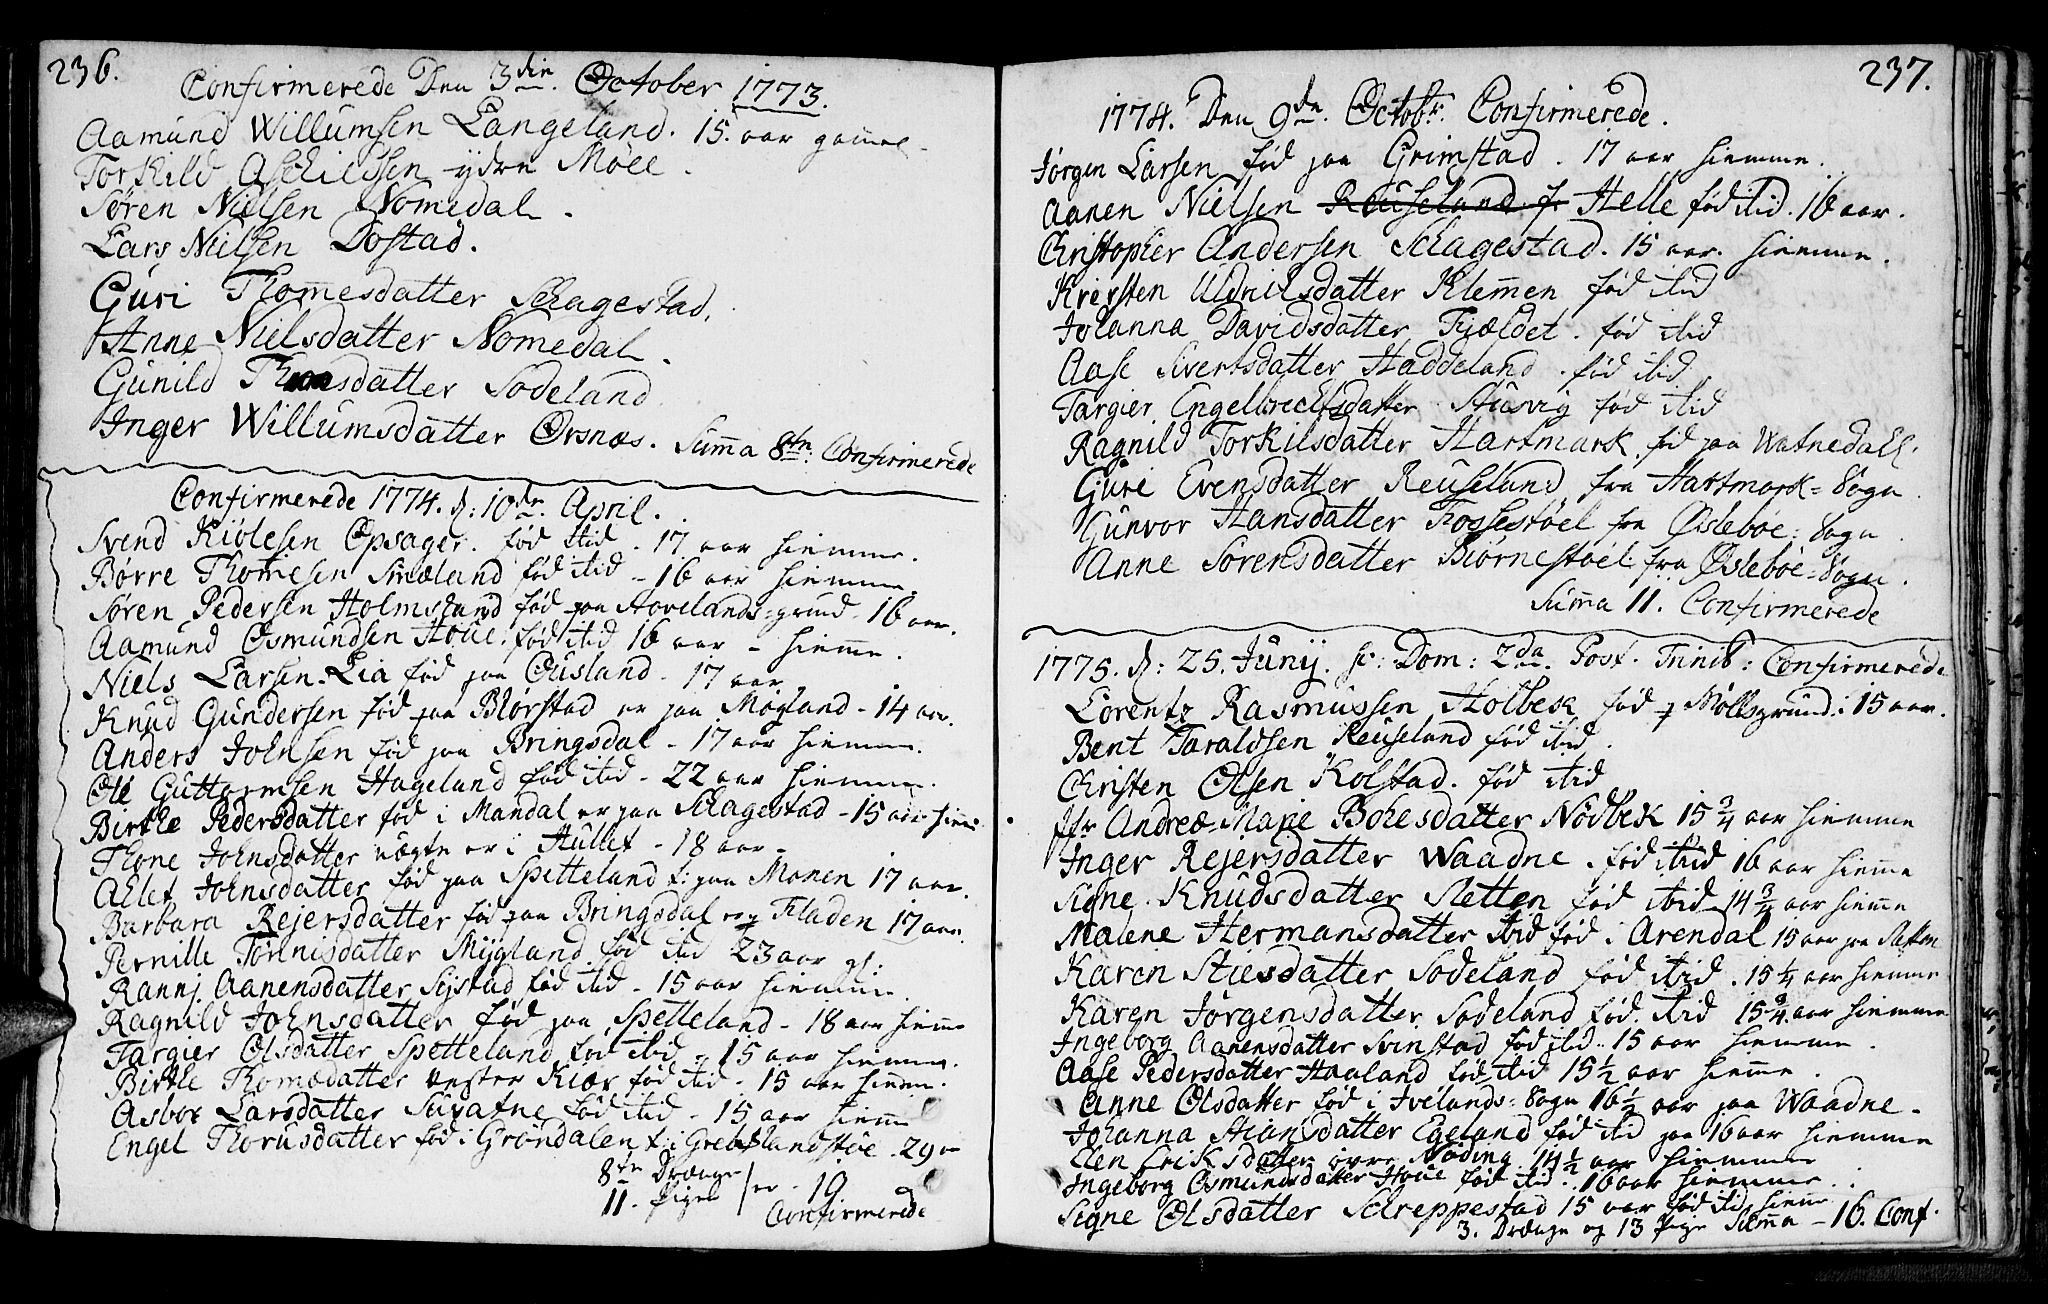 236.
Confirmerede Den 3die. October 1773.
Aamund Willumsen Langeland. 15. aar gamel
Torkild Aschildsen ydre Møll.
Søren Nielsen Nomedal.
Lars Nielsen Dostad.
Guri Thomesdatter Schagestad.
Anne Nielsdatter Nomedal.
Gunild Thomsdatter Sodeland
Inger Willumsdatter Ørsnæs. Summa 8te. Confirmerede
Confirmerede 1774. d: 10de. April.
Svend Kiølesen Opsager. fød ibid - 17 aar hiemme.
Børre Thomesen Smæland fød ibid - 16 aar hiemme
Søren Pedersen Holmstrand fød paa Hovelands-grund - 16 aar.
Aamund Osmundsen Houe. fød ibid 16 aar - hieme.
Niels Larsen Lia fød paa Ousland - 17 aar
Knud Gundersen fød paa Blørstad er paa Mogland - 14 aar.
Anders Johnsen fød paa Bringsdal - 17 aar hiemme.
Ole Guttormsen Hageland fød ibid - 22 aar hiemme.
Birthe Pedersdatter fød i Mandal er paa Schagestad - 15 aar hieme
Thone Johnsdatter er i Hullet - 18 aar -
Aelet Johnsdatter fød paa Spetteland t: paa Monen 17 aar.
Barbara Rejersdatter fød paa Bringsdal Fladen 17 aar.
Pernille Tønnisdatter Mygland fød ibid 23 aar gl:
Rannj. Aanensdatter Sejstad fød ibid - 15 aar hiemme.
Ragnild Johnsdatter fød paa Spetteland - 18 aar hieme
Targier Olsdatter Spetteland fød ibid - 15 aar hiemme.
Birthe Thomædatter vester Kiær fød ibid - 15 aar hiemm.
Asbor Larsdatter Suvatne fød ibid - 15 aar hieme
Engel Thorusdatter fød i Grøndalen t. i Grebslandstøe - 29 aar
8te Drænge
11. Piger er - 19
Confirmerede
237.
1774. Den 9de. Octobr. Confirmerede.
Jørgen Larsen fød paa Grimstad. 17 aar hiemme.
Aanen Nielsen Reuseland f. Helle fød ibid. 16 aar.
Christopher Andersen Schagestad. 15 aar. hiemme.
Kiersten Uldrilsdatter Klemen fød ibid
Johanna Davidsdatter Fjældet. fød ibid
Aase Sivertsdatter Haddeland. fød ibid.
Targier Engelbrechtsdatter Stusvig fød ibid
Ragnild Torkilsdatter Hartmark fød paa Watnedahl.
Guri Evensdatter Reuseland fra Hartmark-Sogn.
Gunvor Hansdatter Fossestøel fra Øslebøe: Sogn
Anne Sørensdatter Biørnestøel fra Øslebøe-Sogn.
Summa 11. Confirmerede
1775. d: 25. Junij. sc: Dom: 2da. Post. Trinit: Confirmerede
Lorentz Rasmussen Holbek fød p Møllsgrund: 15 aar.
Bent Taraldsen Reuseland fød ibid.
Christen Olsen Kolstad. fød ibid
Jfr Andrea-Marie Boyesdatter Nodbek 15 3/4 aar hiemme
Inger Rejersdatter Waadne. fød ibid 16 aar hieme
Signe Knudsdatter Sletten fød ibid 14 3/4 aar hieme
Malene Hermansdatter ibid fød i Arendal 15 aar paa Sletten
Karen Stiesdatter Sodeland fød ibid. 15 1/4 aar hiemme
Karen Jørgensdatter Sodeland fød. ibid 15 3/4. aar hiemme
Ingeborg Aanensdatter Svinstad fød ibid. 15 aar hiemme.
Aase Pedersdatter Haaland fød ibid 15 1/2 aar hieme.
Anne Olsdatter fød i Ivelands-Sogn 16 1/2 aar paa Waadne.
Johanna Stiansdatter Egeland fød ibid paa 16 aar hiemme
Elen Eriksdatter øvre Noding. 14 1/2 aar hiemme
Ingeborg Osmundsdatter Houe fød ibid. 16 aar hiemme.
Signe Olsdatter Schreppestad 15 aar fød ibid hieme
3. Drænge og 13 Pige Summa - 16. Conf.